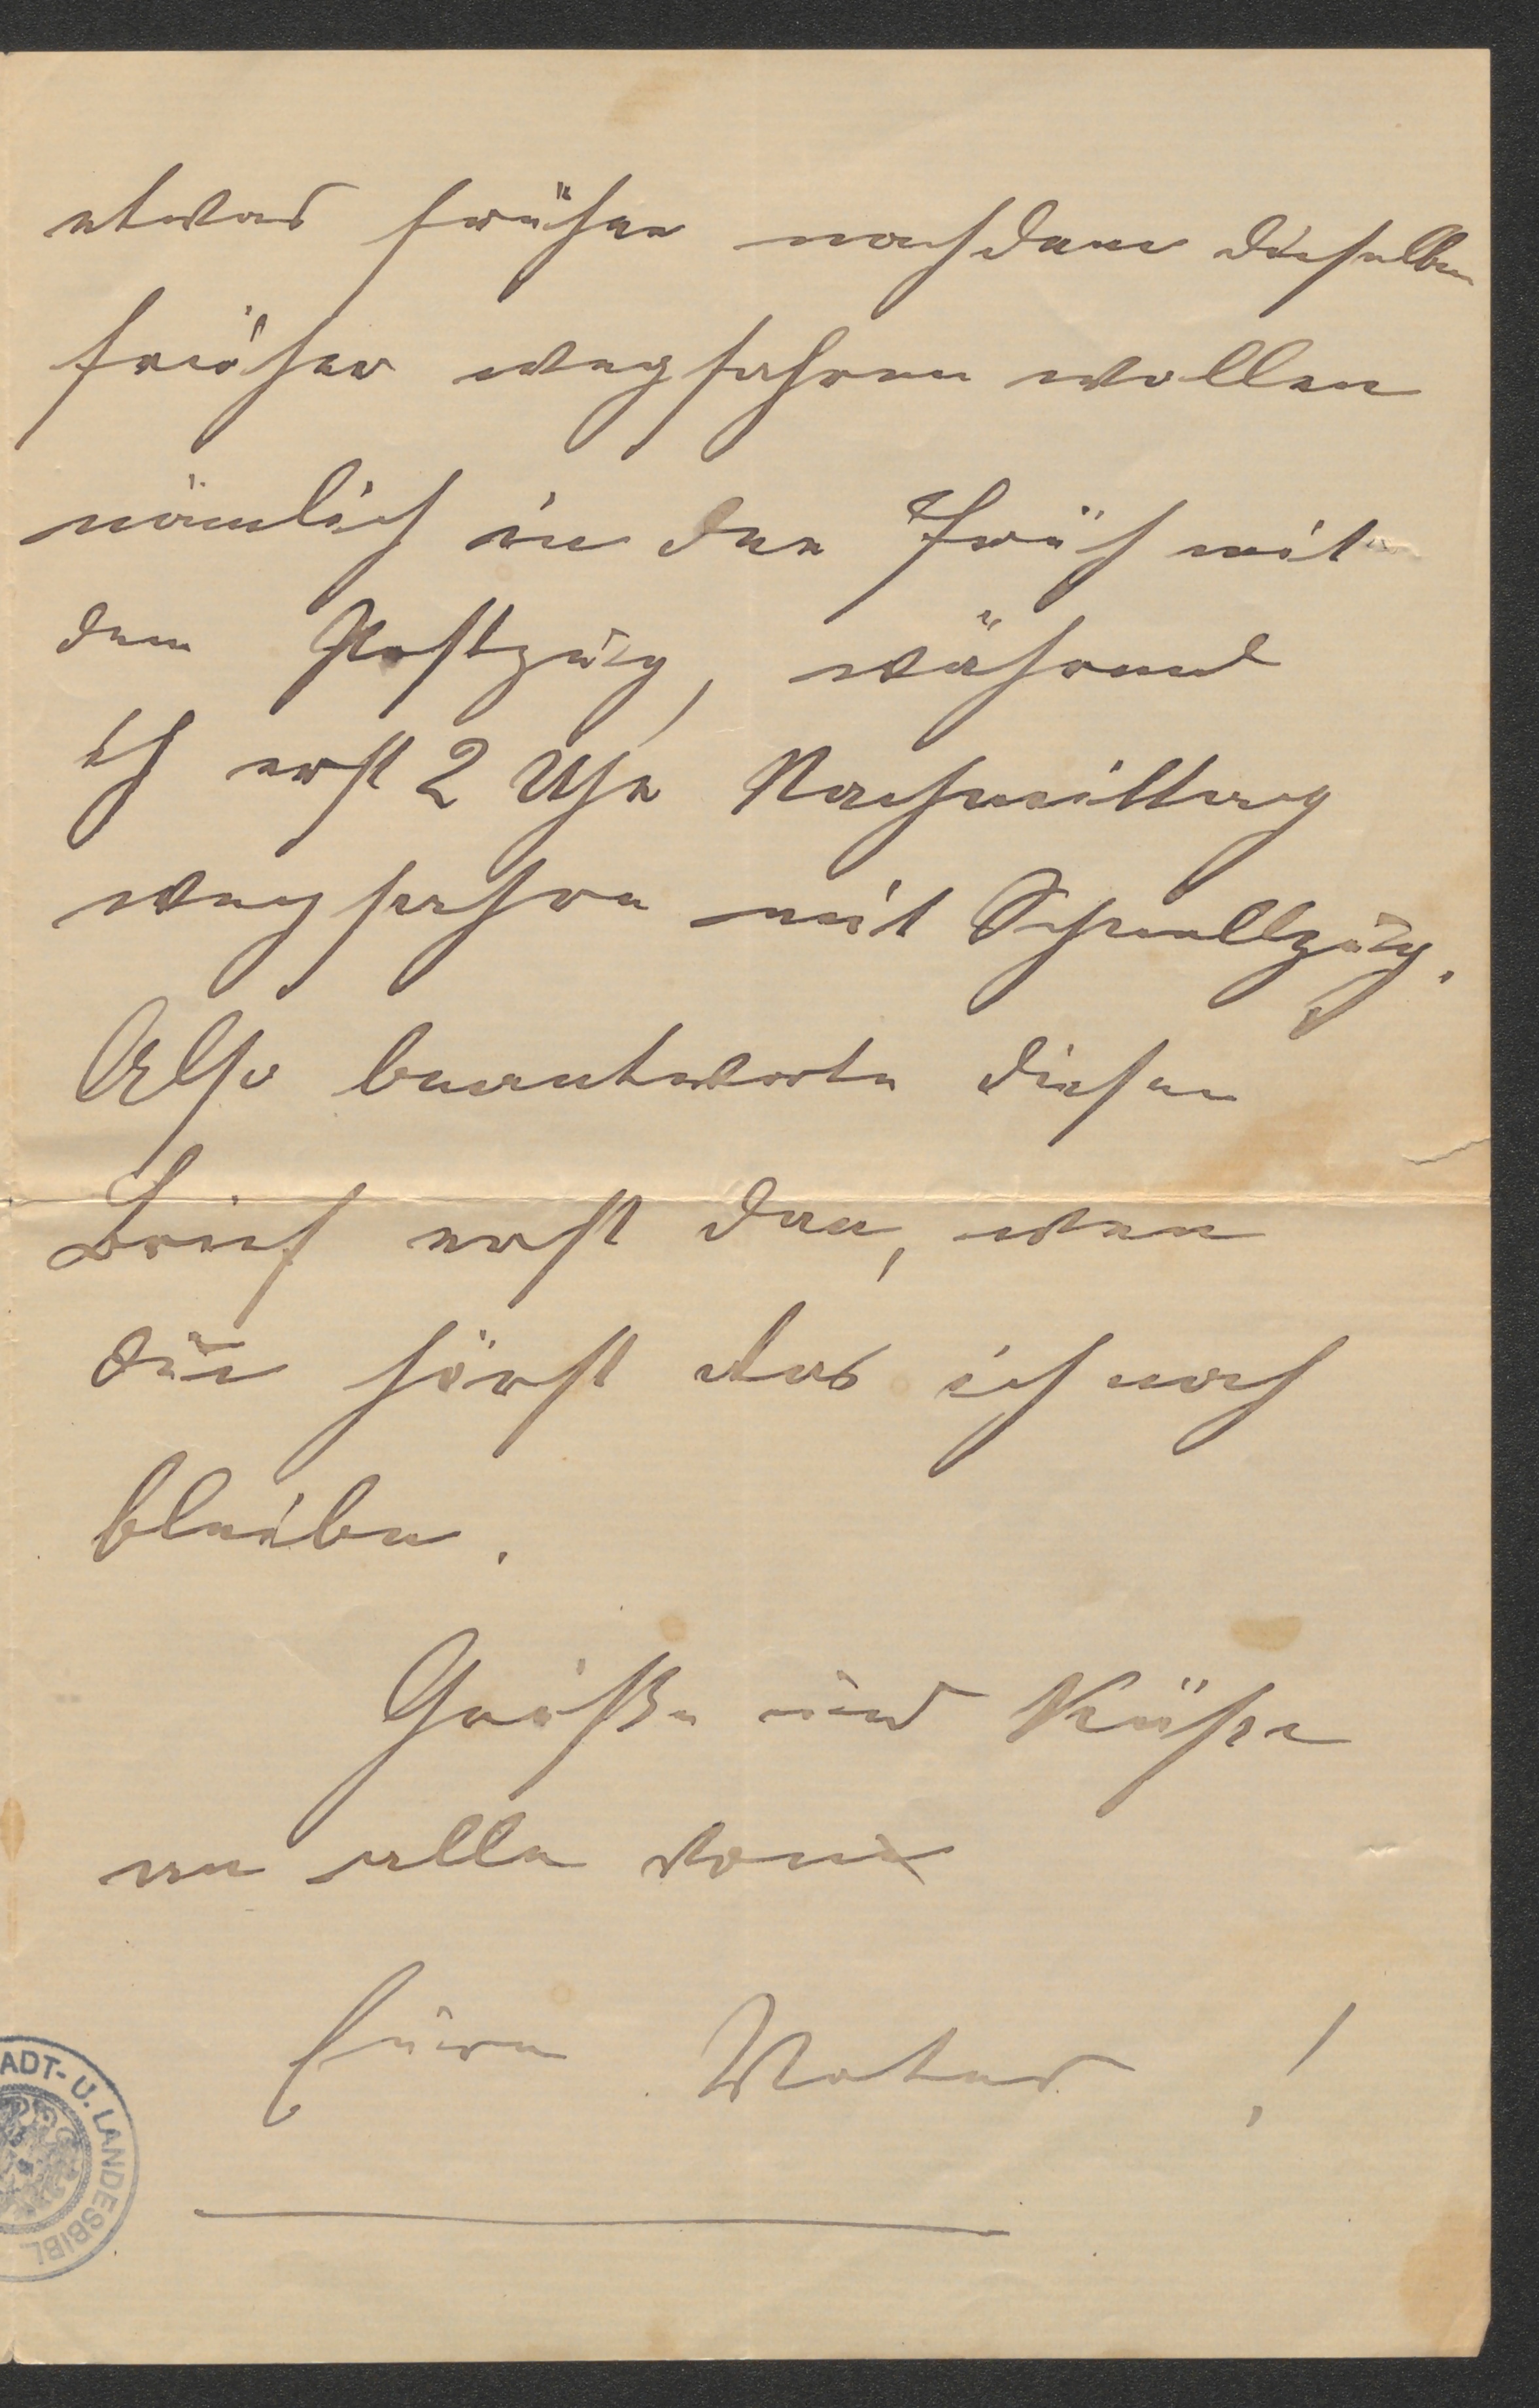 etwas früher nachdem dieselben
früher wegfahren wollen
nämlich in der Früh mit
dem Postzug, während
ich erst 2 Uhr Nachmittag
wegfahre mit Schnellzug.
Also beantworte diesen
Brief erst dan, wen
Du hörst das ich noch
bleibe.
Grüße und Küße
an alle von
Eüre Vater!
ADT- U. LANDESBIBL